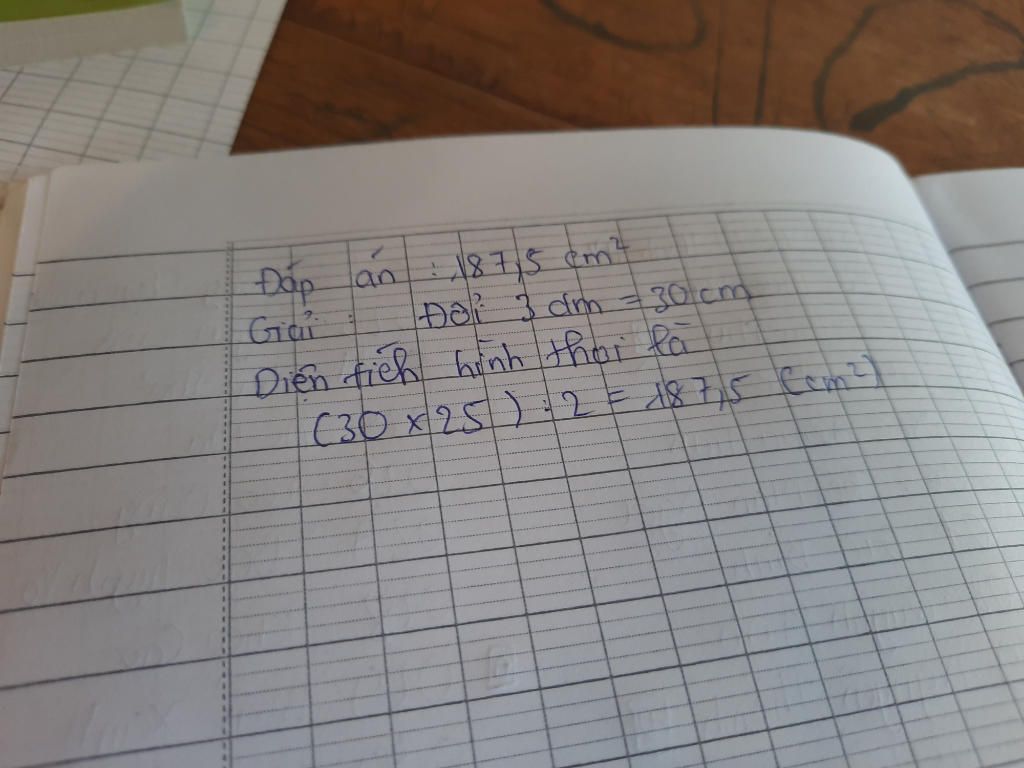 Đáp án : 187,5 cm²
Giải : Đổi 3 dm = 30 cm
Diện tích hình thoi là
(30 x 25) : 2 = 187,5 (cm²)